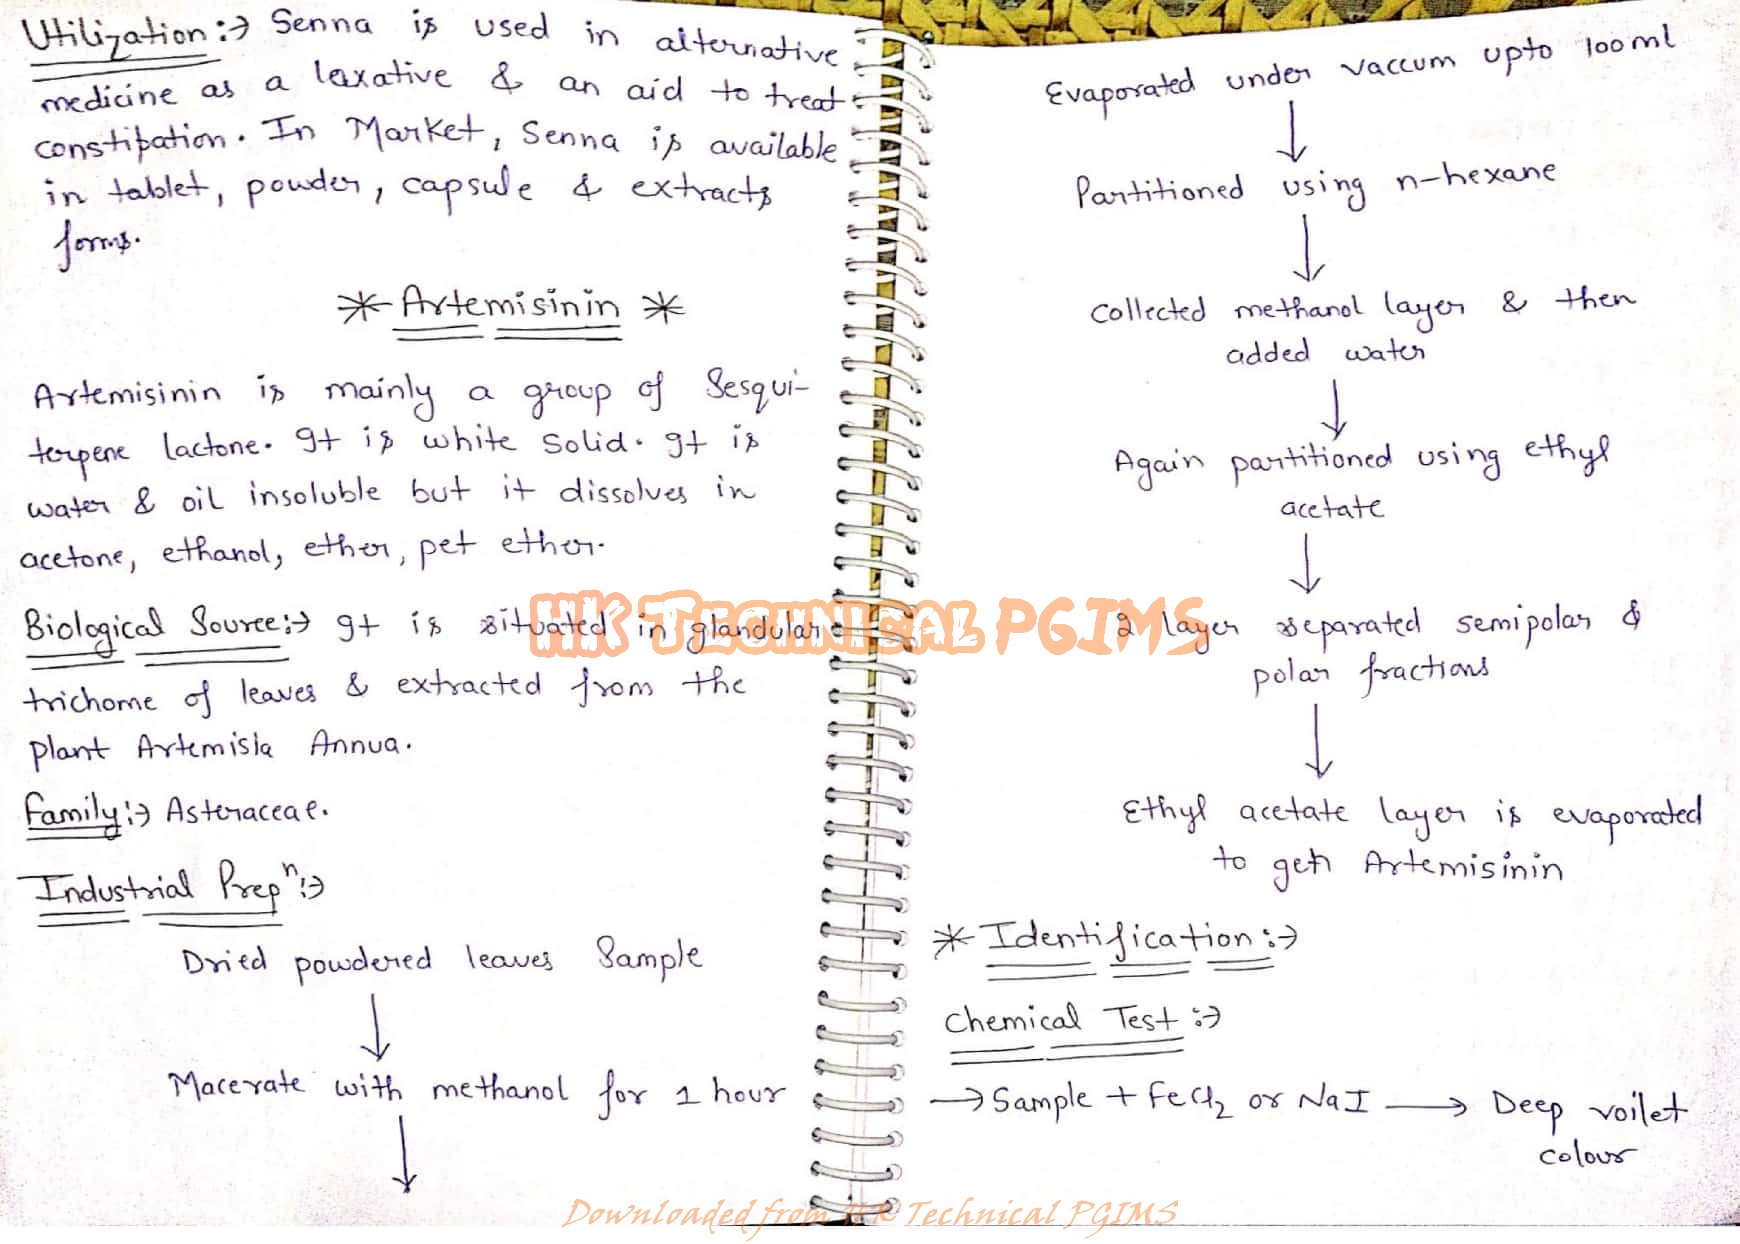 Utilization :→ Senna is used in alternative
medicine as a laxative & an aid to treat
constipation. In Market, Senna is available
in tablet, powder, capsule & extracts
forms.
* Artemisinin *
Artemisinin is mainly a group of Sesqui-
terpene lactone. It is white solid. It is
water & oil insoluble but it dissolves in
acetone, ethanol, ether, pet ether.
Biological Source :→ It is situated in glandular
trichome of leaves & extracted from the
plant Artemisia Annua.
Family :→ Asteraceae.
Industrial Prepⁿ :→
Dried powdered leaves Sample
↓
Macerate with methanol for 1 hour
↓
Evaporated under vaccum upto 100ml
↓
Partitioned using n-hexane
↓
Collected methanol layer & then
added water
↓
Again partitioned using ethyl
acetate
↓
2 layer separated semipolar &
polar fractions
↓
Ethyl acetate layer is evaporated
to get Artemisinin
* Identification :→
Chemical Test :→
→ Sample + FeCl₂ or NaI → Deep voilet
colour
HK Technical PGIMS
Downloaded from HK Technical PGIMS